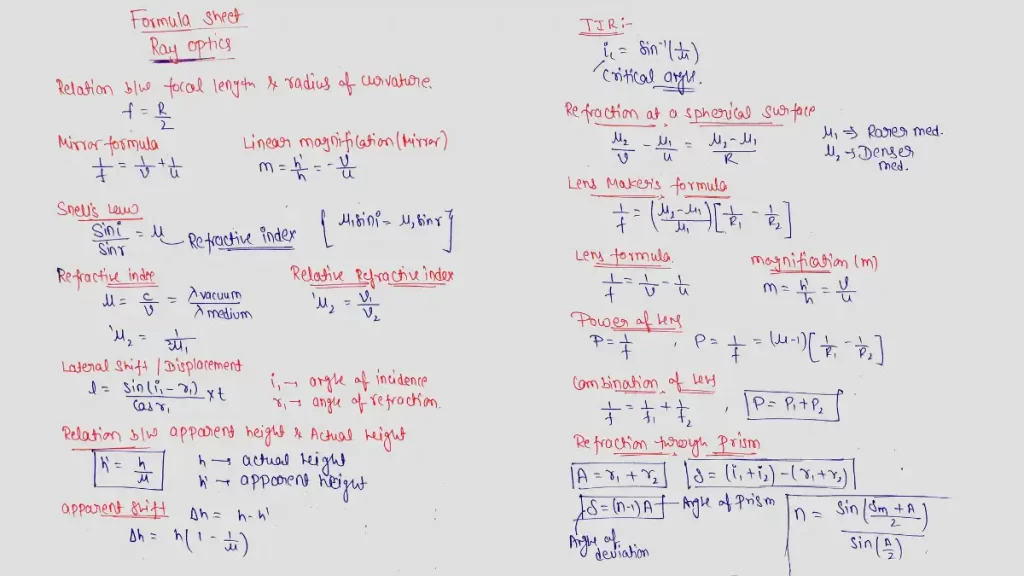 Formula sheet
Ray optics
Relation b/w focal length & radius of curvature.
f = R/2
Mirror formula
1/f = 1/v + 1/u
Linear magnification (Mirror)
m = h'/h = -v/u
Snell's law
sin i / sin r = μ
Refractive index
[ μ1 sin i = μ2 sin r ]
Refractive inde
μ = c/v = λ vacuum / λ medium
Relative Refractive index
¹μ₂ = v₁/v₂
¹μ₂ = 1/²μ₁
Lateral shift / Displacement
l = sin(i₁ - r₁)/cos r₁ × t
i₁ → angle of incidence
r₁ → angle of refraction.
Relation b/w apparent height & Actual height
h' = h/μ
h → actual height
h' → apparent height
apparent shift
Δh = h - h'
Δh = h(1 - 1/μ)
TIR:-
ic = sin⁻¹(1/μ)
critical angle.
Refraction at a spherical surface
μ₂/v - μ₁/u = (μ₂ - μ₁)/R
μ₁ ⇒ Rarer med.
μ₂ → Denser
med.
Lens Maker's formula
1/f = ((μ₂ - μ₁)/μ₁)[1/R₁ - 1/R₂]
Lens formula.
1/f = 1/v - 1/u
magnification (m)
m = h'/h = v/u
Power of lens
P = 1/f , P = 1/f = (μ-1)[1/R₁ - 1/R₂]
Combination of lens
1/f = 1/f₁ + 1/f₂ , P = P₁ + P₂
Refraction through prism
A = r₁ + r₂
δ = (i₁ + i₂) - (r₁ + r₂)
δ = (n-1)A
Angle of prism
Angle of
deviation
n = sin((δm + A)/2) / sin(A/2)